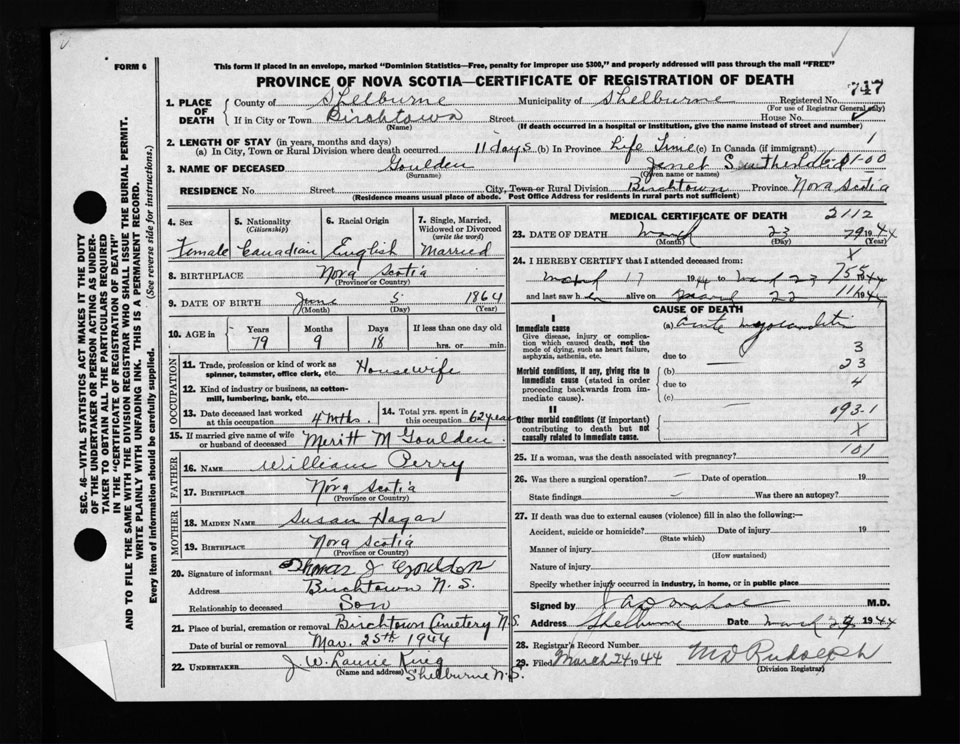 This form if placed in an envelope, marked "Dominion Statistics—Free, penalty for improper use $300," and properly addressed will pass through the mail "FREE"
FORM 6
PROVINCE OF NOVA SCOTIA—CERTIFICATE OF REGISTRATION OF DEATH
747
1. PLACE OF DEATH
County of Shelburne Municipality of Shelburne Registered No.
(For use of Registrar General only)
If in City or Town Birchtown Street House No.
(Name) (If death occurred in a hospital or institution, give the name instead of street and number)
2. LENGTH OF STAY (in years, months and days)
(a) In City, Town or Rural Division where death occurred 11 days (b) In Province Life Time (c) In Canada (if immigrant) 1
3. NAME OF DECEASED Goulden Janet
(Surname) (Given name or names)
RESIDENCE No. Street City, Town or Rural Division Birchtown Province Nova Scotia
(Residence means usual place of abode. Post Office Address for residents in rural parts not sufficient)
4. Sex Female
5. Nationality (Citizenship) Canadian
6. Racial Origin English
7. Single, Married, Widowed or Divorced (write the word) Married
8. BIRTHPLACE Nova Scotia
(Province or Country)
9. DATE OF BIRTH June 5 1864
(Month) (Day) (Year)
10. AGE in Years Months Days If less than one day old
79 9 18 hrs. or min.
OCCUPATION
11. Trade, profession or kind of work as spinner, teamster, office clerk, etc. Housewife
12. Kind of industry or business, as cotton-mill, lumbering, bank, etc.
13. Date deceased last worked at this occupation 4 mths.
14. Total yrs. spent in this occupation 62 years
15. If married give name of wife or husband of deceased Meritt M Goulden
FATHER
16. NAME William Perry
17. BIRTHPLACE Nova Scotia
(Province or Country)
MOTHER
18. MAIDEN NAME Susan Hagar
19. BIRTHPLACE Nova Scotia
(Province or Country)
20. Signature of informant Thomas J Goulden
Address Birchtown N.S.
Relationship to deceased Son
21. Place of burial, cremation or removal Birchtown Cemetery N.S
Date of burial or removal Mar. 25th 1944
22. UNDERTAKER J. W. Laurie King
(Name and address) Shelburne N.S.
MEDICAL CERTIFICATE OF DEATH 2112
23. DATE OF DEATH March 23 1944
(Month) (Day) (Year)
79
X
24. I HEREBY CERTIFY that I attended deceased from:
March 17 1944 to March 23 1944
755
and last saw her alive on March 22 1944
CAUSE OF DEATH
I
Immediate cause
Give disease, injury or complication which caused death, not the mode of dying, such as heart failure, asphyxia, asthenia, etc.
(a) acute myocarditis
due to
3
Morbid conditions, if any, giving rise to immediate cause (stated in order proceeding backwards from immediate cause).
(b) 23
due to 4
(c)
II
Other morbid conditions (if important) contributing to death but not causally related to immediate cause.
093-1
X
101
25. If a woman, was the death associated with pregnancy?
26. Was there a surgical operation? Date of operation 19
State findings Was there an autopsy?
27. If death was due to external causes (violence) fill in also the following:—
Accident, suicide or homicide? Date of injury 19
(State which)
Manner of injury
(How sustained)
Nature of injury
Specify whether injury occurred in industry, in home, or in public place
Signed by M.D.
Address Shelburne Date March 1944
28. Registrar's Record Number
29. Filed March 24 1944 M D Rudolph
(Division Registrar)
SEC. 46—VITAL STATISTICS ACT MAKES IT THE DUTY
OF THE UNDERTAKER OR PERSON ACTING AS UNDERTAKER TO OBTAIN ALL THE PARTICULARS REQUIRED
IN THE "CERTIFICATE OF REGISTRATION OF DEATH"
AND TO FILE THE SAME WITH THE DIVISION REGISTRAR WHO SHALL ISSUE THE BURIAL PERMIT.
WRITE PLAINLY WITH UNFADING INK. THIS IS A PERMANENT RECORD.
Every item of information should be carefully supplied. (See reverse side for instructions.)